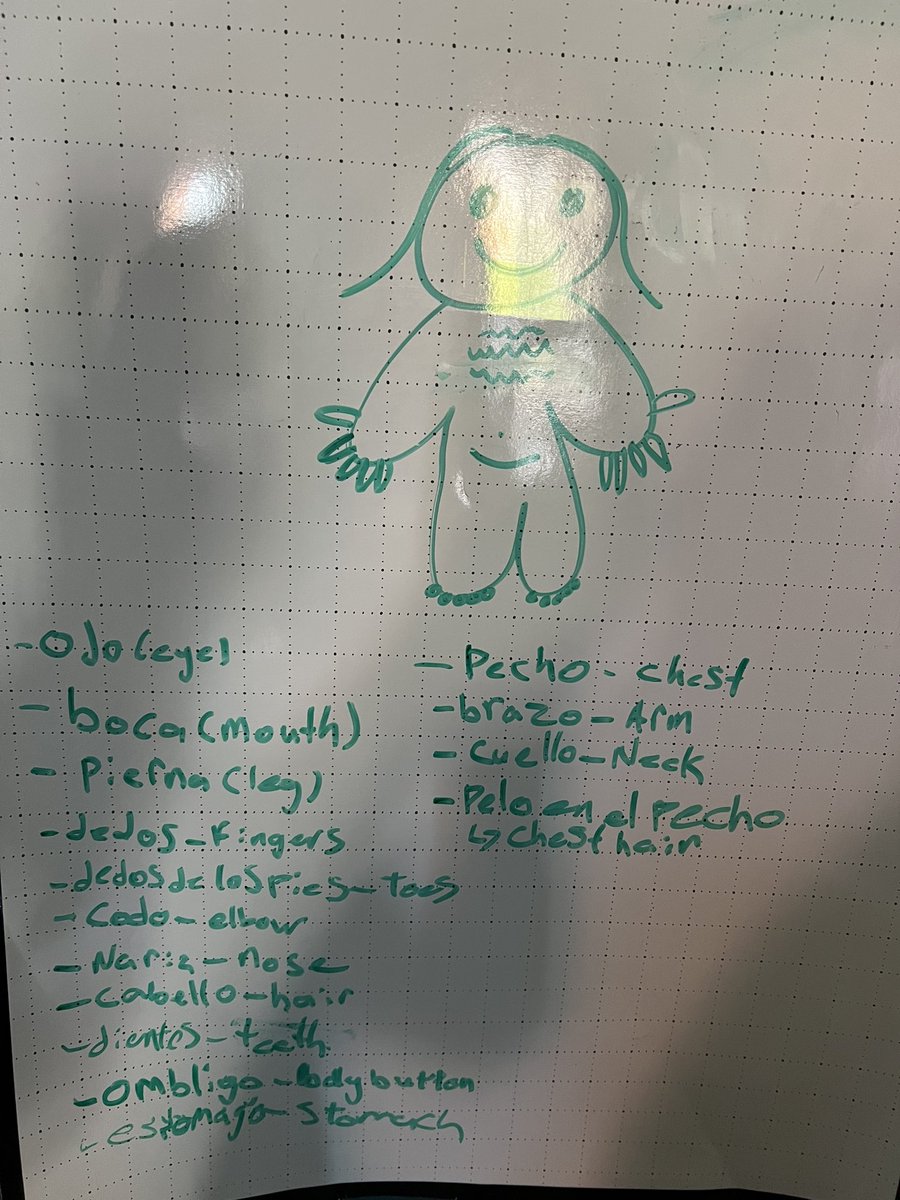 - Ojo (eye)
- boca (mouth)
- Pierna (leg)
- dedos - fingers
- dedos de los pies - toes
- Codo - elbow
- Nariz - nose
- Cabello - hair
- dientes - teeth
- ombligo - bodybutton
- estomajo - Stomach
- Pecho - chest
- brazo - Arm
- Cuello - Neck
- Pelo en el Pecho
↳ Chest hair